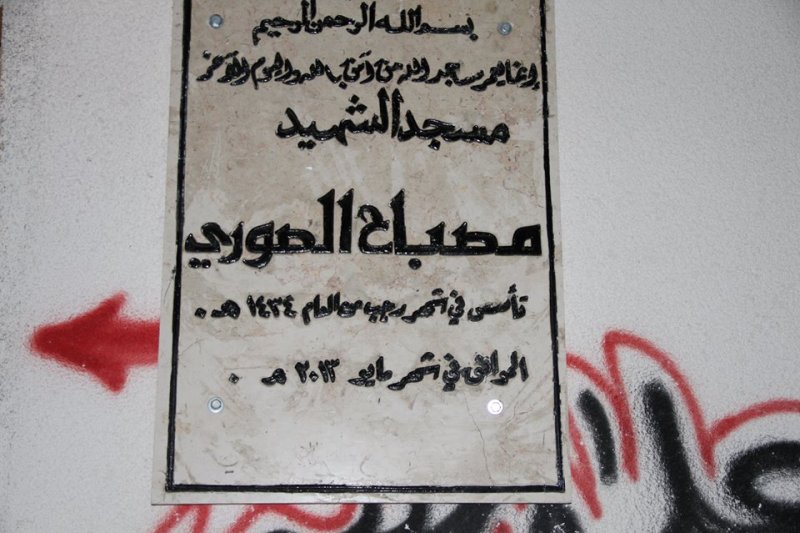 بسم الله الرحمن الرحيم
إنما يعمر مساجد الله من آمن بالله واليوم الآخر
مسجد الشهيد
مصباح الصوري
تأسس في شهر رجب من العام ١٤٣٤ هـ .
الموافق في شهر مايو ٢٠١٣ مـ .